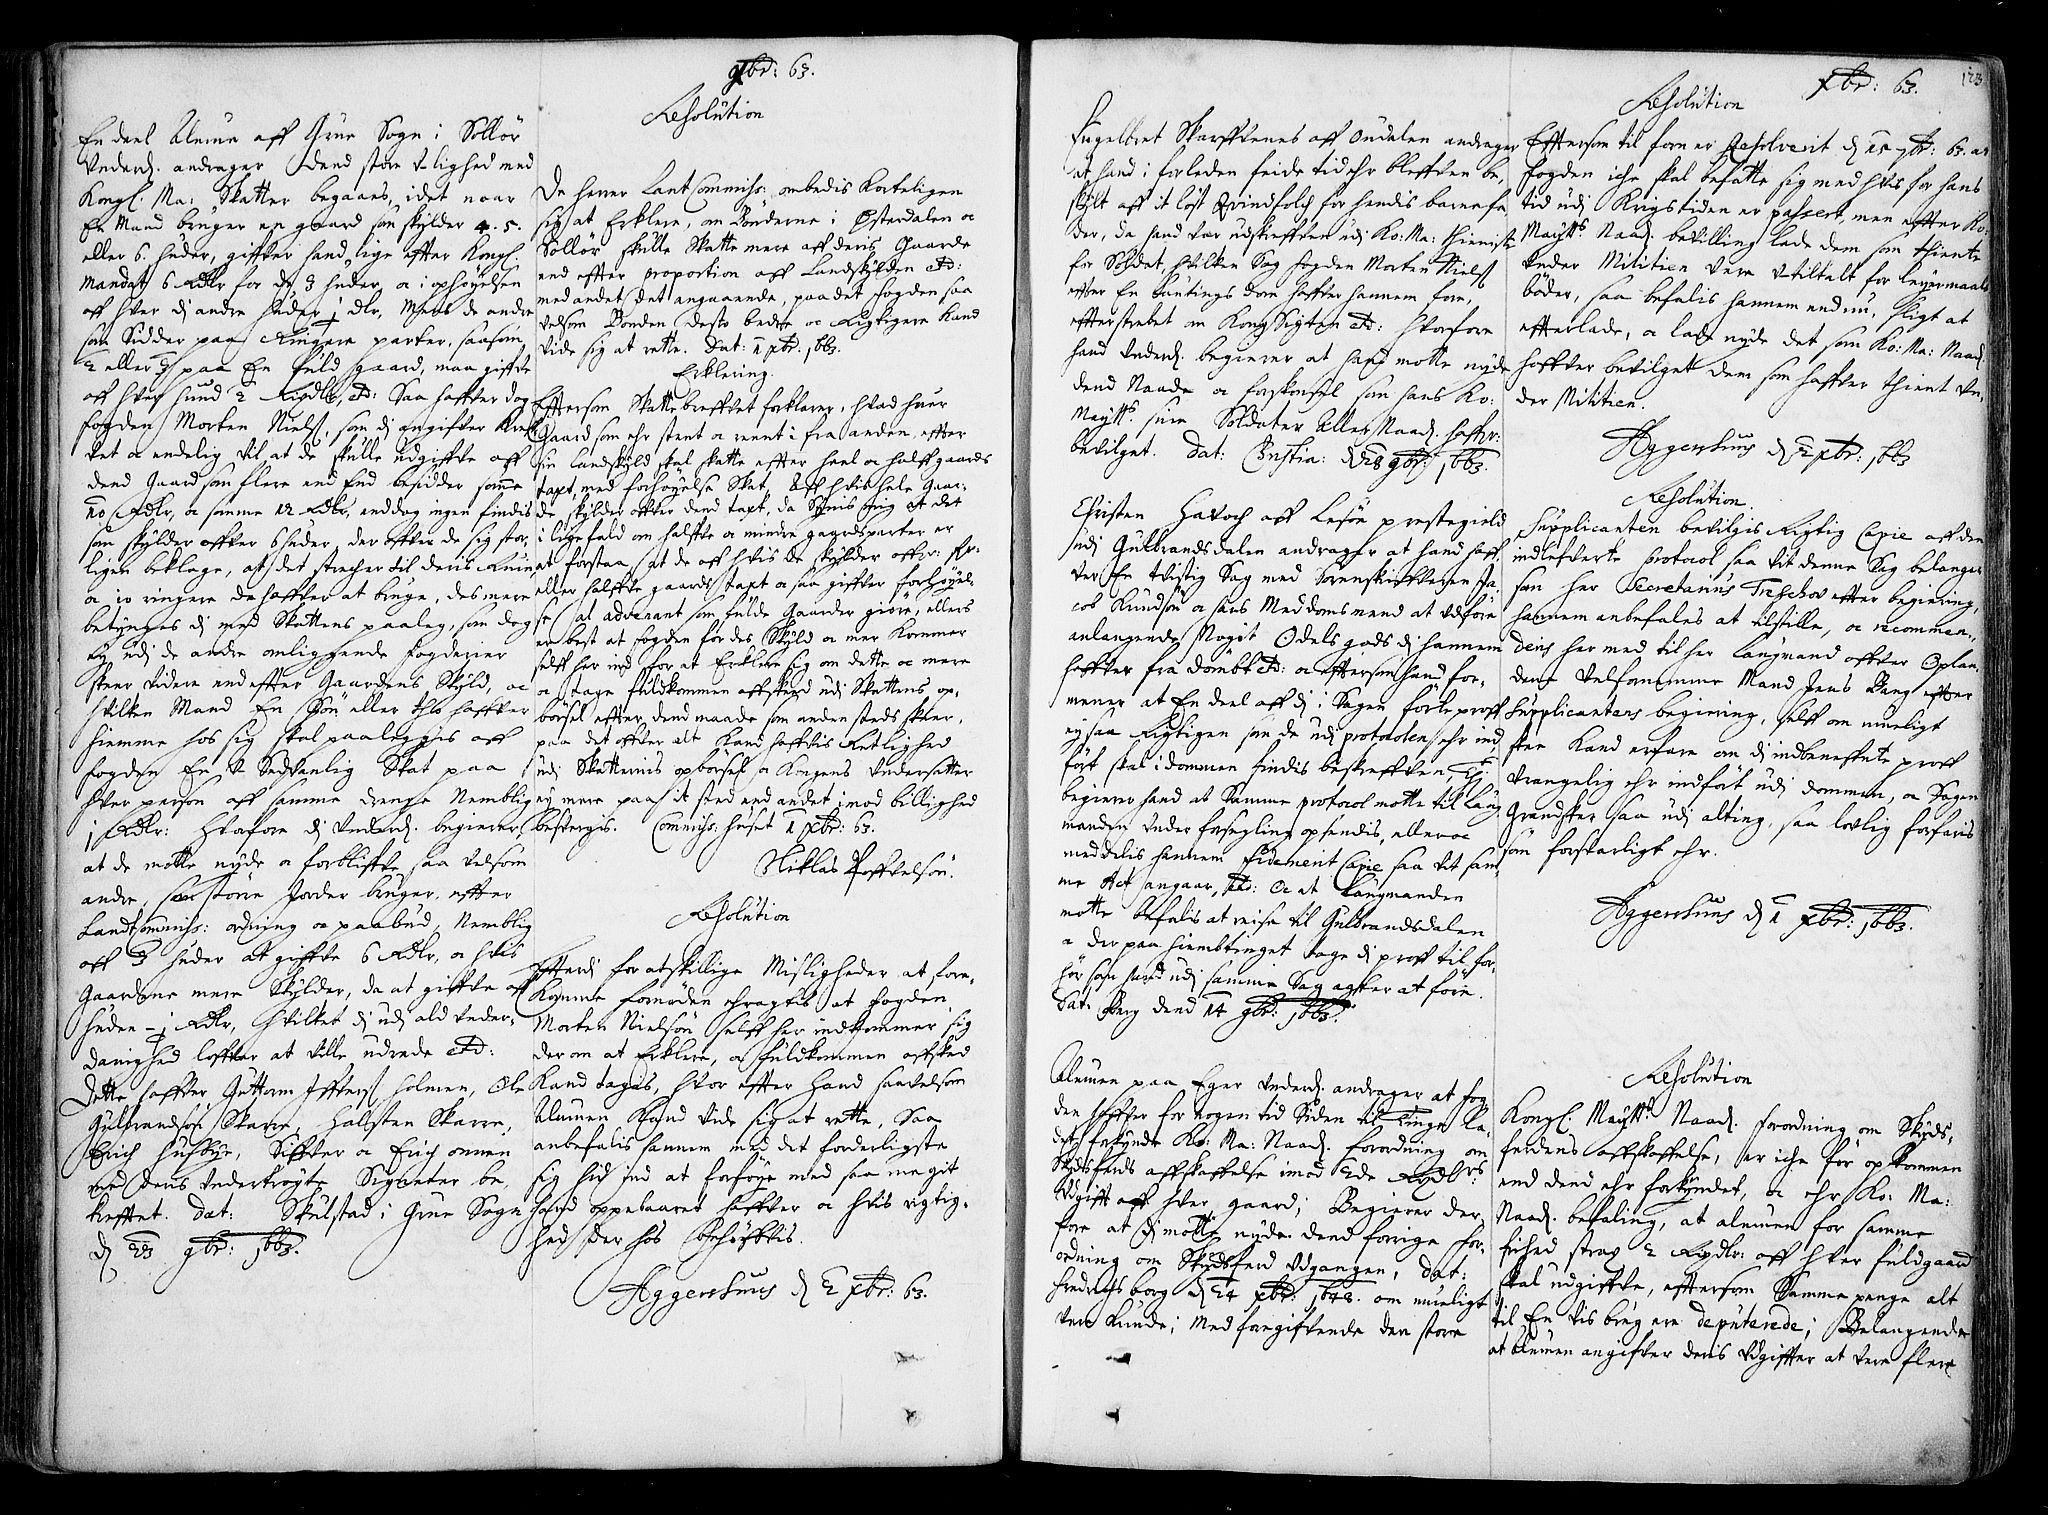 9br: 63.
En deel Almue aff Grue Sogn i Sollør
Underd. andrager dend store Ulighed med
Kongl: Ma: Skatter begaaes, idet naar
En Mand bruger en gaard som skylder 4. 5.
eller 6. huder, giffver hand lige effter Kongl.
Mandat 6 Rdlr for de 3 huder, oc i ophøyelsen
aff hver di andre huder j dlr, Mens de andre
som Sidder paa Ringere parter, saasom
2 eller 3 paa En fuld gaard, maa giffve
aff hver hud 2 Rixdlr, etc: Saa haffver dog
fogden Morten Niels. som di angifver
det oc endelig vil, at de skulle udgiffve aff
dend Gaard som flere end End besidder samme
10 Rdlr, oc somme 12 Rdlr, enddog ingen findis
som skylder offver 6 huder, der offver de sig stor,
ligen beklage, at det strecher til deris Ruin
oc jo ringere de haffver at bruge, des mere
betynges di med Skattens paaleg, som dog
ey udi de andre omliggende fogderier
skeer videre end effter Gaardens Skyld, oc
hvilken Mand En Søn eller tho haffver
hiemme hos sig skal paalegges aff
fogden En U Sedvanlig Skat paa
hver person aff samme drenge Nemblig
1 Rdlr: Hvorfore di Underd. begierer,
at de motte nyde oc forbliffve saa velsom
andre, som større Jorder bruger, effter
Landcommiss: ordning oc paabud, Nemblig
aff 3 huder at giffve 6 Rdlr, oc hvis
Gaardene mere Skylder, da at giffve aff
huden - j Rdlr, hvilket di udi ald under,
danighed loffver at ville udrede etc:
Dette haffver Guttorm Iffvers. holmen, Ole
Gulbrandsøn Skarre, Halsten Skarre,
Erich Husbye, Siffver oc Erich
med deris undertrøgte Signeter be,
krefftet. Dat: Skulstad i Grue Sogn
d 23 9br: 1663.
Resolution
De herrer Lant Commiss: ombedis Korteligen
sig at Erklere, om Bønderne i Østerdalen oc
Sollør skulle Skatte mere aff deris Gaarde
end effter proportion aff Landskylden etc:
med andet det angaaende, paa det fogden saa
velsom Bonden desto bedre oc Rigtigere Kand
vide sig at rette. Dat: 1 xbr: 1663.
Erklering.
Efftersom Skattebreffvet forklarer, hvad huer
Gaard som ehr stent oc rennt i fra anden, effter
sin landskyld skal skatte effter heel oc halff gaards
taxt, med forhøyelse Skat, Aff hvis hele Gaar,
de skylder offver dend taxt, da Synis mig at det
i ligefald om halffve oc mindre gaardsparter er
at forstaa, at de aff hvis de skylder offver: for:
eller halffve gaards taxt oc saa giffver forhøyel,
se sat advenant som fulde Gaarder giøre, ellers
er best at fogden for des Skyld oc mer Kommer
selff her ind for at Erklere sig om dette oc mere
oc tage fuldkommen affskeed udi Skattens op,
børsel effter dend maade som anden steds skeer,
paa det offver alt Kand haffvis Retlighed
udi Skatternis opbørsel oc Kongens Undersatter
ey mere paa it sted end andet imod billighed
besvergis. Commiss: huset 1 xbr: 63.
Niklas Poffvelsøn.
Resolution
Efftersi for atskillige Misligheder at fore,
Komme fornøden eragtis at fogden
Morten Nielsøn selff her indkommer sig
derom at Erklere, oc fuldkommen affsked
Kand tages, hvor effter hand saavelsom
Almuen Kand vide sig at rette, Saa
anbefalis hannem med det forderligste
sig hid ind at forføye med saa megit
hand oppebaaret haffver oc hvis rigtig,
hed der hos behøffvis.
Aggershuus d 2 xbr: 63.
xbr: 63.
123
Engelbret Skarffvenes aff Oudalen andrager
at hand i forleden feide tid ehr bleffven be,
skylt aff it løst Qvindfolch for hendis barnefa,
der, da hand var udskreffven udi Ko: Ma: thieniste
for Soldat, hvilken Sag fogden Morten Niels.
effter En Lautings dom haffver hannem fore,
efftertrebet om Kong Sigten etc: Hvorfore
hand Underd. begierer at hand motte nyde
dend Naade oc forskonsel som hans Ko:
Maytts sine Soldater Aller Naad. haffr:
bevilget. Dat: Christia: d 28 9br: 1663.
Christen Havoch aff Lesøe prestegield
udi Gulbrandsdalen andrager at hand haff,
ver En tvistig Sag med Sorenskriffveren Ja,
cob Knudsøn oc hans Meddomsmend at udføre
anlangende Nogit Odels gods di hannem
haffver fra dømbt etc: oc efftersom hand for,
mener at En deel aff di i Sagen førte proff
ey saa Rigtigen som de udi protocolen ehr ind,
ført skal i dommen findis beskreffven, Thi
begierer hand at Samme protocol motte til Laug
manden under forsegling opsendis, eller oc
meddelis hannem fidement Copie saa vit sam,
me Act angaar, etc: Oc at Laugmanden
motte befalis at reise til Gulbrandsdalen
oc der paa hiembtinget tage di proff til for,
hør som hand udi samme Sag agter at føre.
Dat: Berg dend 14 9br: 1663.
Almuen paa Eger underd. andrager at fog
den haffver for nogen tid Siden til Tinge la,
det forkynde Ko: Ma: Naad. forordning om
Skydsferds affskaffelse imod 2de Rixdlrs:
Udgifft aff hver gaard; Begierer der,
fore at di motte nyde dend forrige for,
ordning om Skydsferd Udgangen, dat:
fredrichsborg d 24 xbr: 1648. om mueligt
vere Kunde; Med foregiffvende den store
Resolution
Efftersom til forn er Resolverit d 15 7br: 63. at
fogden iche skal befatte sig med hvis for hans
tid udi Krigstiden er passert, men effter Ko:
Maytts Naad. bevilling lade dem som thiente
under Militien vere utiltalt for leyermaals
bøder, saa befalis hannem end nu, sligt at
efterlade, oc lade nyde det som Ko: Ma: Naad.
haffver bevilget dem som haffver thient un,
der Militien.
Aggershuus d 2 xbr: 1663
Resolution.
Supplicanten bevilgis Rigtig Copie aff den
indlefverte protocol saa vit denne Sag belanger
som her Secretarius Treschov effter begiering,
hannem anbefales at tilstille, oc recomman,
deris her med til her Laugmand offver Oplan,
dene Velfornemme Mand Jens Bang effter
Supplicantens begiering, selff om mueligt
skee Kand erfare om di indbemeldte proff
vrangelig ehr indført udi dommen, oc Sagen
Grandsker saa udi alting, saa lovlig forfaris
som forsvarligt ehr.
Aggershuus d 1 xbr: 1663.
Resolution
Kongl: Maytts Naad. forordning om Skyds,
ferdens affskaffelse, er iche før opkommen
end dend ehr forkyndet, oc ehr Ko: Ma:
Naad. befaling, at almuen for samme
frihed strax 2 Rixdlr: aff hver fuldgaard
skal udgiffve, efftersom Samme penge alt
til En vis brug ere deputerede; Belangende
at almuen angifver deris Udgiffter at vere flere